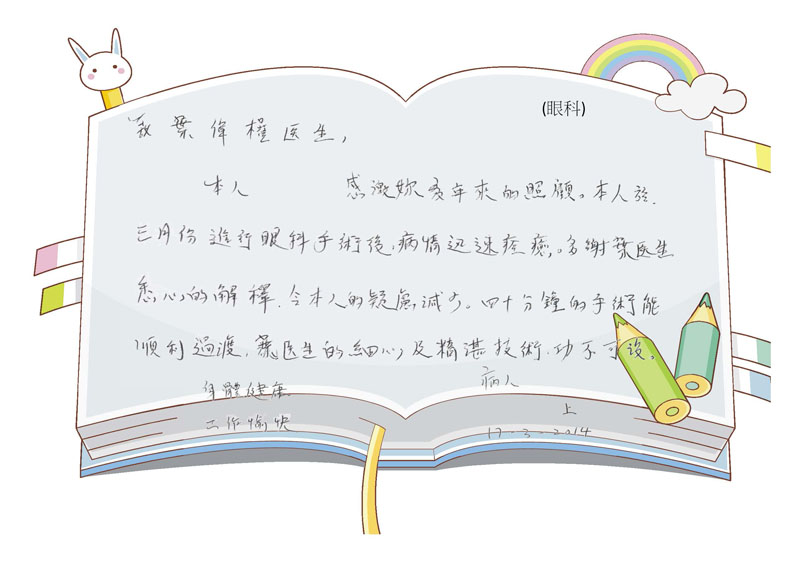 (眼科)
致葉偉權医生，
本人 感激妳多年來的照顧。本人於
三月份進行眼科手術後，病情迅速痊癒，多謝葉医生
悉心的解釋，令本人的疑慮減少。四十分鐘的手術能
順利過渡，葉医生的細心及精湛技術，功不可沒。
身體健康 病人
工作愉快 上
17-3-2014